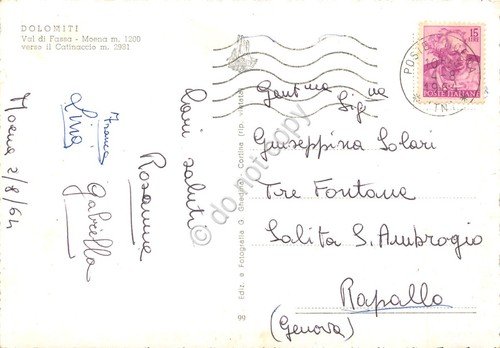 DOLOMITI
Val di Fassa - Moena m. 1200
verso il Catinaccio m. 2981
Moena 2/8/64
Cari saluti
Rosanna
Gabriella
Lina
Franca
Ediz. e Fotografia G. Ghedina, Cortina (rip. vietata)
99
15
LIRE
POSTE ITALIANE
Gent.ma Sig.na
Giuseppina Solari
Tre Fontane
Salita S. Ambrogio
Rapallo
(Genova)
do not copy